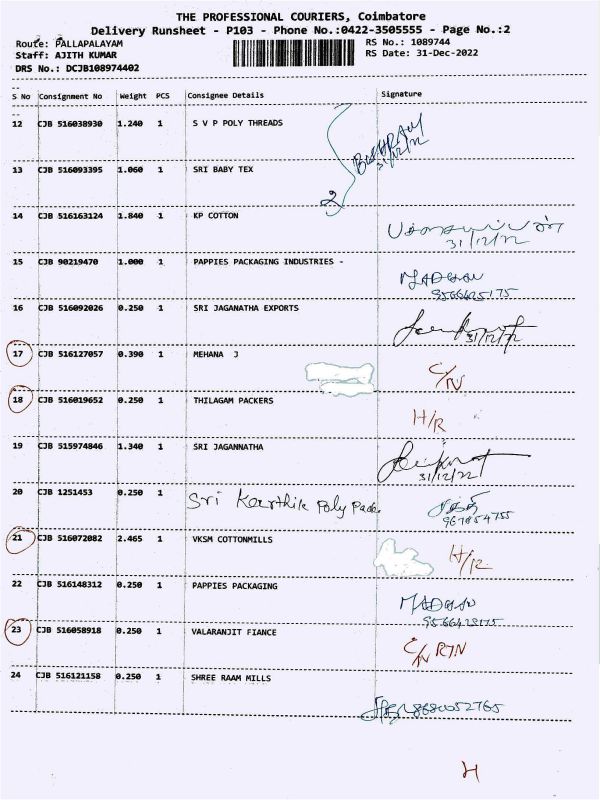 THE PROFESSIONAL COURIERS, Coimbatore
Delivery Runsheet - P103 - Phone No.:0422-3505555 - Page No.:2
Route: PALLAPALAYAM RS No.: 1089744
Staff: AJITH KUMAR RS Date: 31-Dec-2022
DRS No.: DCJB108974402
S No Consignment No Weight PCS Consignee Details Signature
12 CJB 516038930 1.240 1 S V P POLY THREADS
31/12/22
13 CJB 516093395 1.060 1 SRI BABY TEX
2
14 CJB 516163124 1.840 1 KP COTTON
31/12/22
15 CJB 90219470 1.000 1 PAPPIES PACKAGING INDUSTRIES -
MADHAN
16 CJB 516092026 0.250 1 SRI JAGANATHA EXPORTS
31/12/22
17 CJB 516127057 0.390 1 MEHANA J
C/N
18 CJB 516019652 0.250 1 THILAGAM PACKERS
H/R
19 CJB 515974846 1.340 1 SRI JAGANNATHA
31/12/22
20 CJB 1251453 0.250 1 Sri Karthik Poly Pack.
21 CJB 516072082 2.465 1 VKSM COTTONMILLS
H/R
22 CJB 516148312 0.250 1 PAPPIES PACKAGING
MADHAN
23 CJB 516058918 0.250 1 VALARANJIT FIANCE
C/N RTN
24 CJB 516121158 0.250 1 SHREE RAAM MILLS
8680052765
H